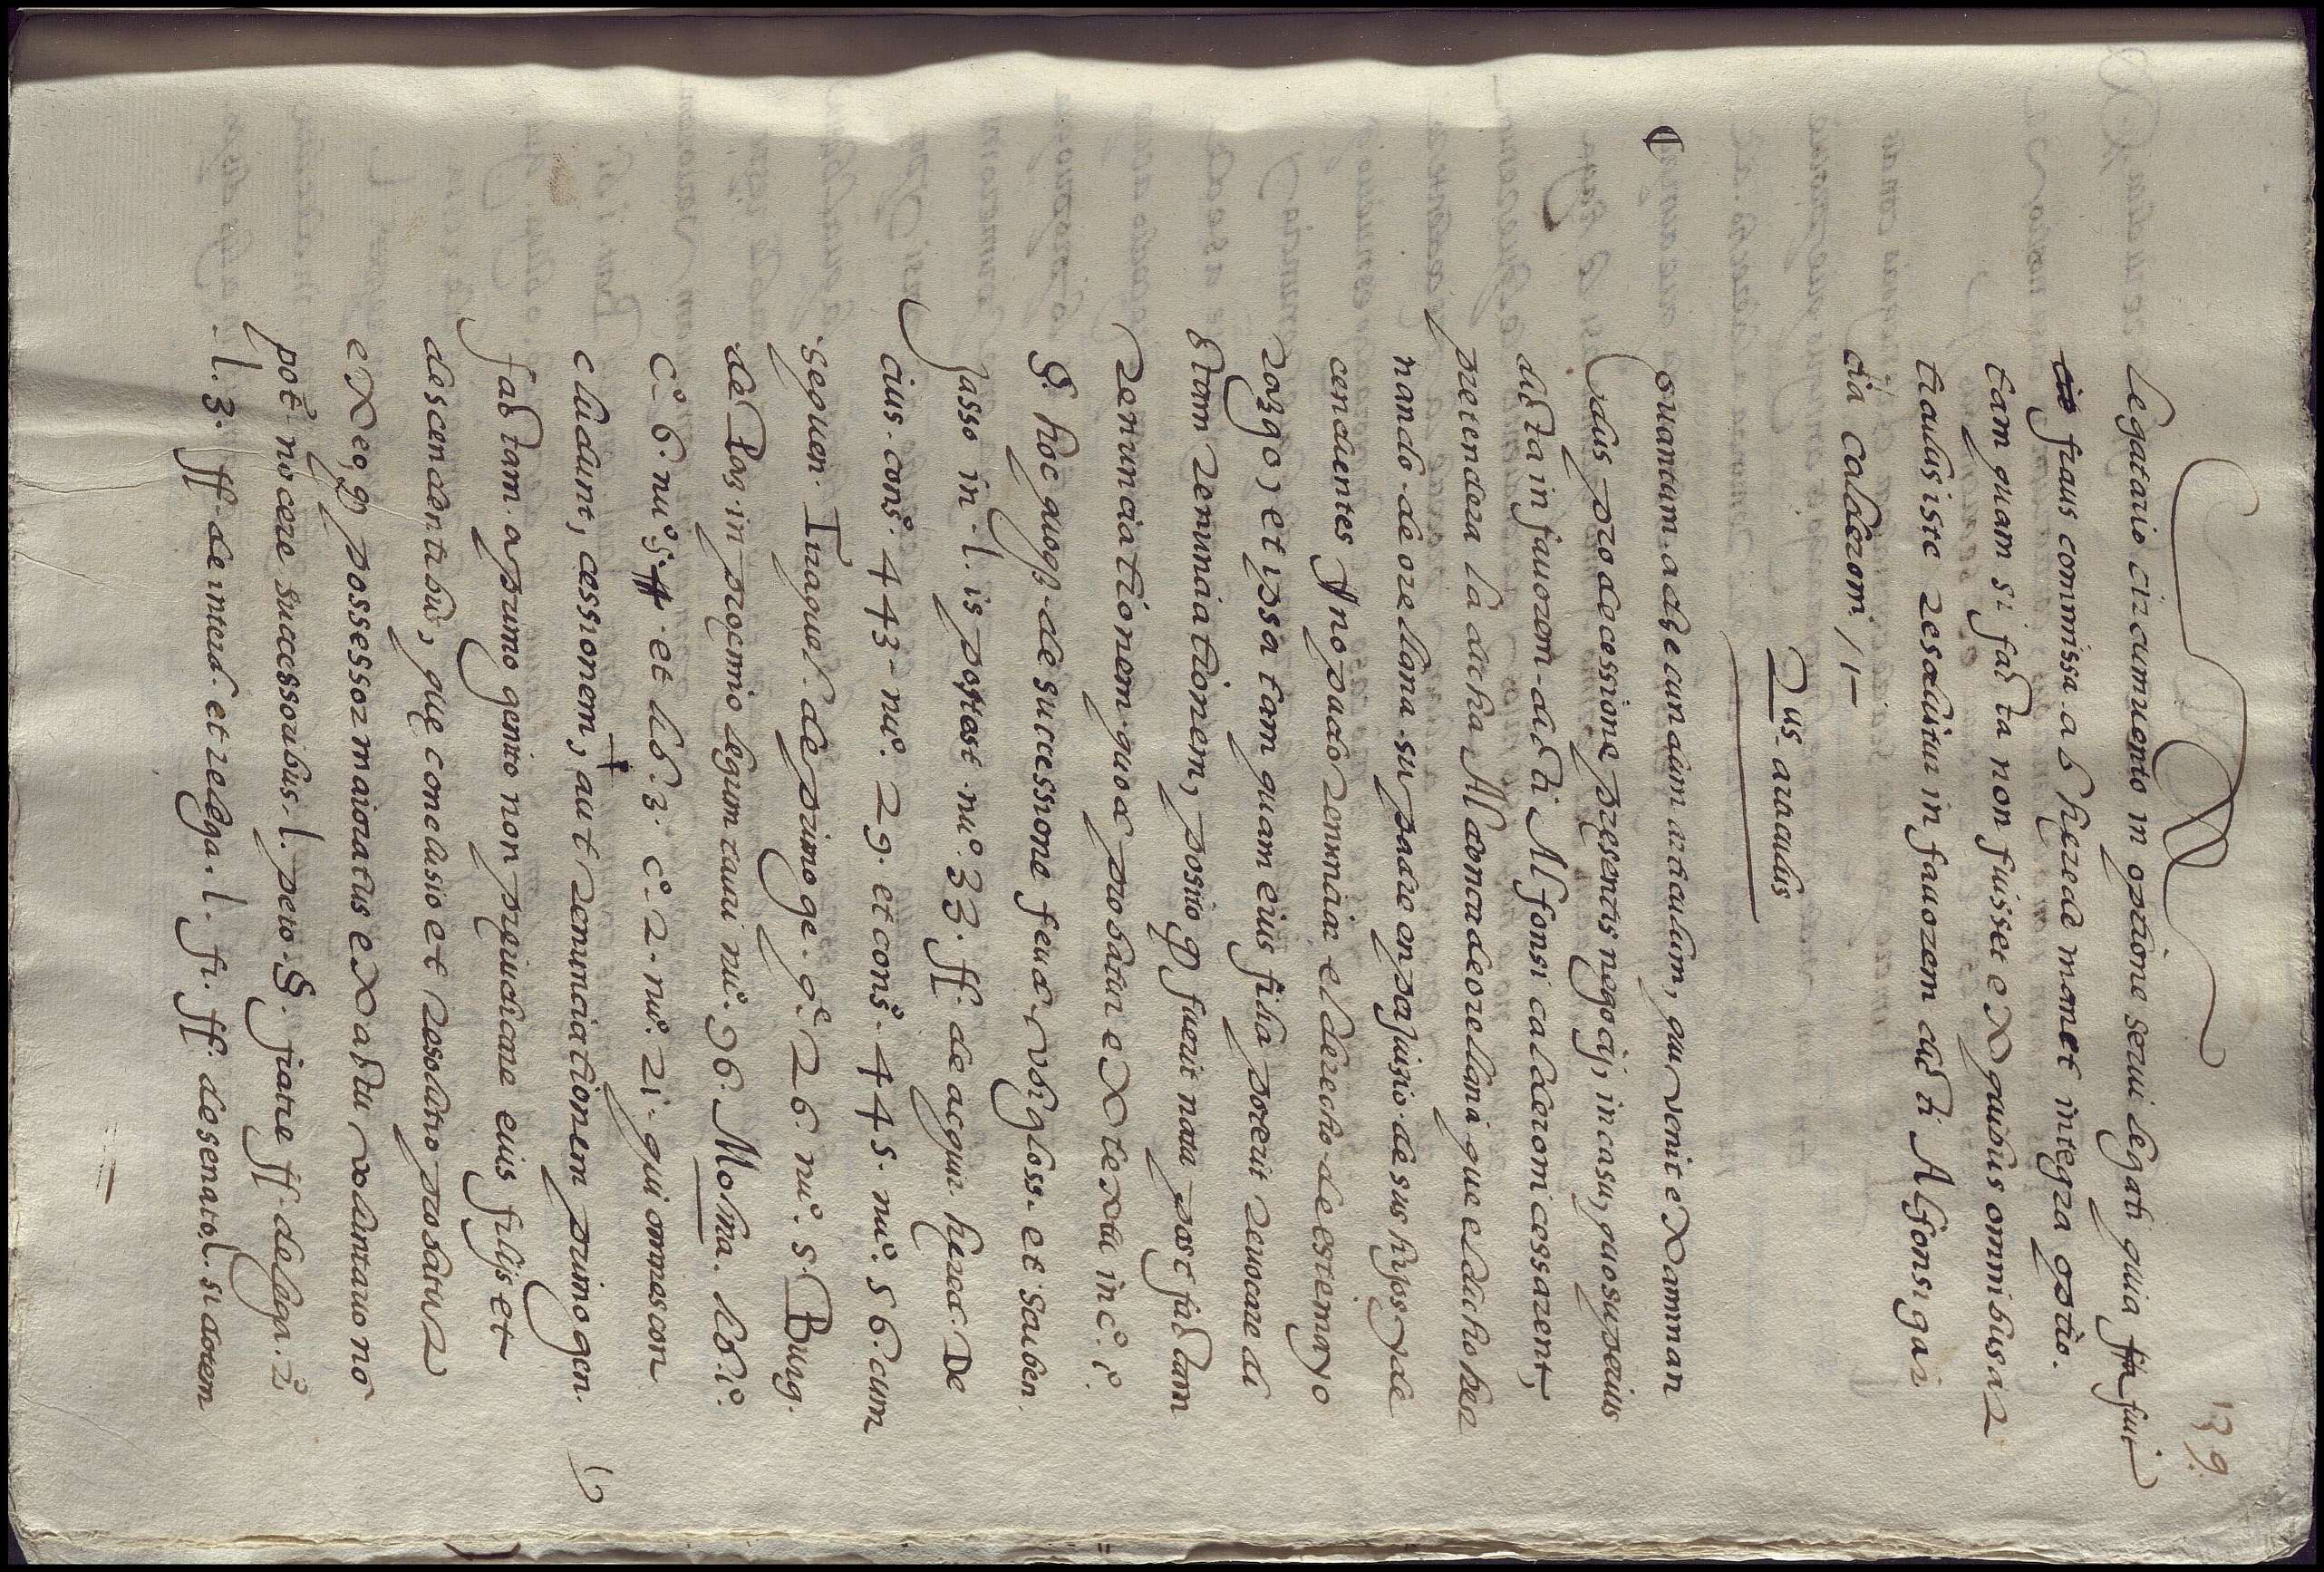 139.
legatario circumuento in optione serui legati quia fuit
fraus commissa ab herede manet integra optio.
tam quam si facta non fuisset ex quibus omnibus ar
traductiste resoluitur in fauorem dicti Alfonsi gar
cia calderom //-
2us. articulus
Quantum ad secundum articulum, qui venit examinan
dus pro decessione presentis negocij, in casu, quo superius
dicta in fauorem dicti Alfonsi calderoni cessarent,
pretendera la dicha Maconcadeorellana que el dicho her
nando de orellana su padre en perjuizio de sus hijos y de
cendientes no pudo renunciar el derecho de este mayo
razgo, et ipsa tam quam eius filia poterit reuocare di
ctam renunciationem, posito qp fuerit nata post factam
renunciationem quod probatur ex textu in c.º i.
§. hoc quoqp. de successione feud. vbi gloss. et scriben.
Jasso in l. is potest nu.º 33. ff. de acquir. hered. De
cius. cons.º 443. nu.º 29. et cons.º 445. nu.º 56. cum
sequen. Tiraquel. de primoge. q.º 26. nu.º 5. Burg.
de Pas. in proemio legum tauri nu.º 96. Molina. lib. i.º
c.º 6. nu.º 5. et lib. 3. c.º 2. nu.º 21. qui omnes con
cludunt, cessionem, aut renunciationem primogen.
factam a primo genito non prejudicare eius filijs et
descendentibus, que conclusio et resolutio probatur
ex eo, qp possessor maioratus ex actu voluntario nō
pot nocere successoribus. l. peto. §. fratre ff. de lega. 2.º
l. 3. ff. de interd. et relega. l. fi. ff. de senato. l. si arrem